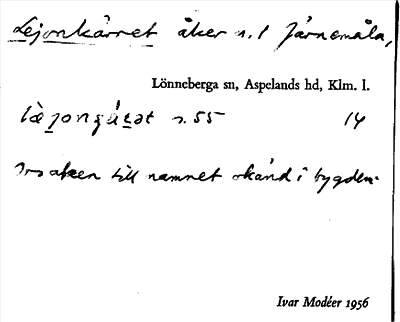 Lejonkärret åker s. 1 Järnemåla,
Lönneberga sn, Aspelands hd, Klm. l.
s. 55 14
Orsaken till namnet okänd i bygden.
Ivar Modéer 1956